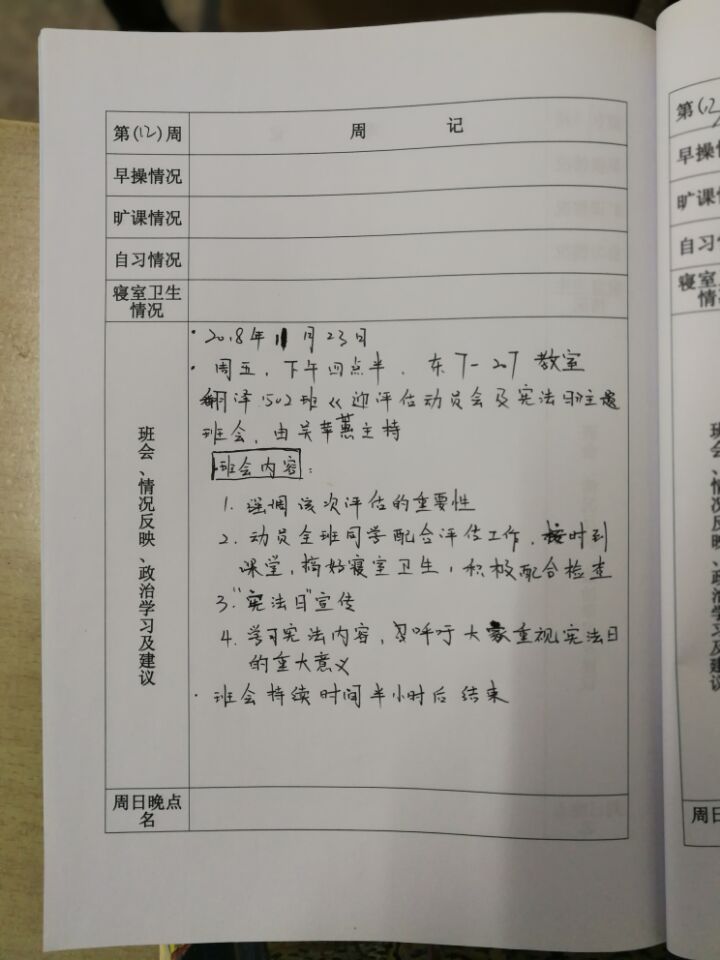 第(12)周 周 记
早操情况
旷课情况
自习情况
寝室卫生
情况
班会、情况反映、政治学习及建议
·2018年11月23日
·周五,下午四点半,东7-207教室
翻译1502班《迎评估动员会及宪法日》主题
班会,由吴苹蕙主持
班会内容:
1. 强调该次评估的重要性
2. 动员全班同学配合评估工作,按时到
课堂,搞好寝室卫生,积极配合检查
3.“宪法日”宣传
4. 学习宪法内容,呼吁大家重视宪法日
的重大意义
·班会持续时间半小时后结束
周日晚点
名
第(12
早操情
旷课情
自习情
寝室
情
班会、情况反映、政治学习及建议
周日